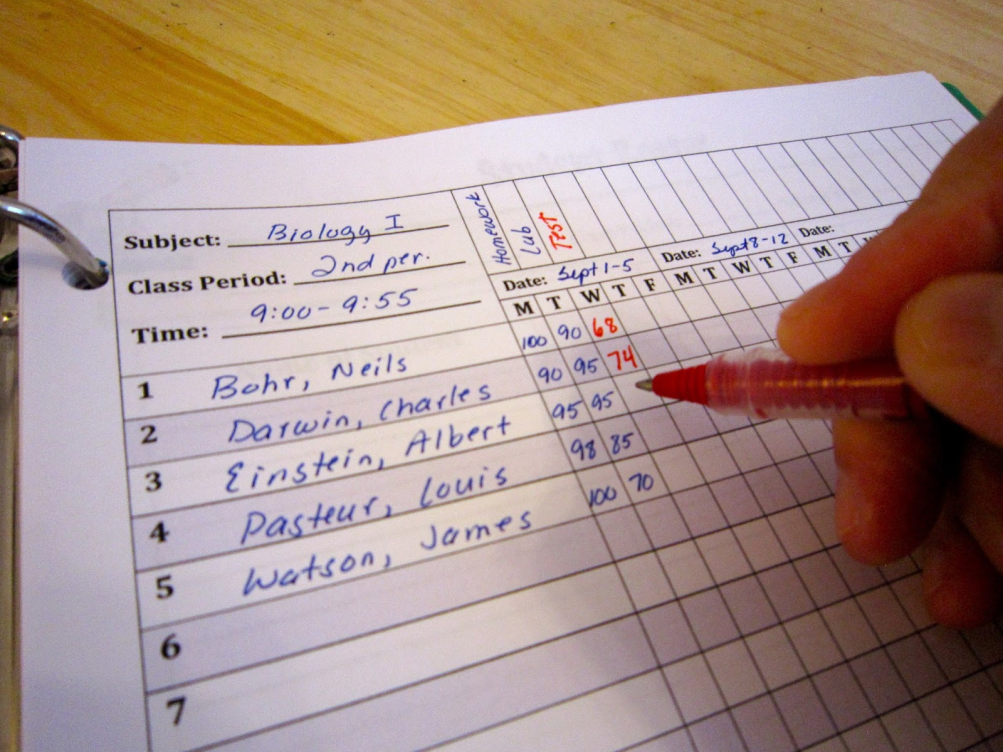 Subject: Biology I
Class Period: 2nd per.
Time: 9:00 - 9:55
Homework
Lab
Test
Date: Sept 1-5
Date: Sept 8-12
Date:
M T W T F M T W T F M T
1 Bohr, Neils 100 90 68
2 Darwin, Charles 90 95 74
3 Einstein, Albert 95 95
4 Pasteur, Louis 98 85
5 Watson, James 100 70
6
7